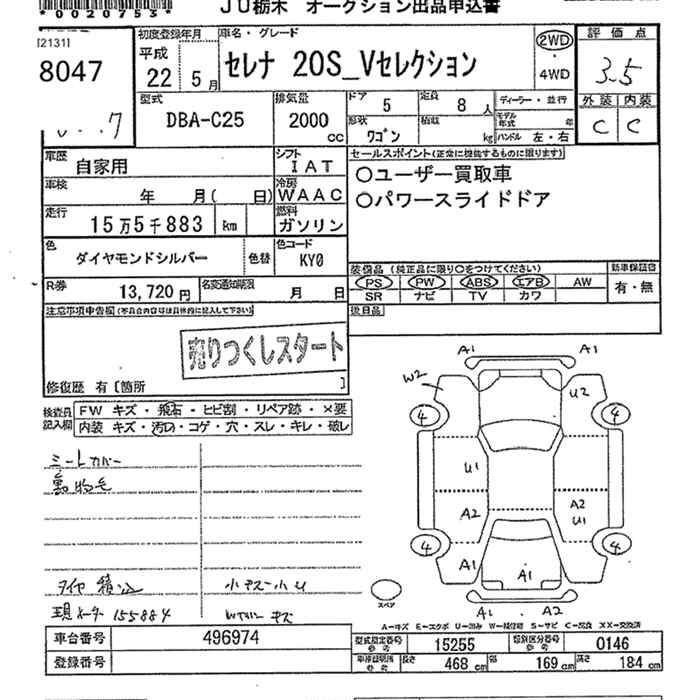 *0020753*
JU栃木 オークション出品申込書
[2131]
8047
初度登録年月
平成
22 5月
車名・グレード
セレナ 20S_Vセレクション
2WD
・
4WD
評価点
3.5
外装 内装
C C
型式
DBA-C25
排気量
2000
CC
ドア 5
定員 8人
形状 ワゴン
積載 kg
ディーラー・並行
モデル年式 年
ハンドル 左・右
車歴 自家用
シフト IAT
車検 年 月( 日)
冷房 WAAC
走行 15万5千883 km
燃料 ガソリン
色 ダイヤモンドシルバー 色替
色コード KY0
R券 13,720円
名変通知期限 月 日
セールスポイント(正常に機能するものに限ります)
○ユーザー買取車
○パワースライドドア
装備品 (純正品に限り○をつけてください)
新車保証書
PS PW ABS エアB AW
有・無
SR ナビ TV カワ
後日品
注意事項申告欄(不具合の内容は具体的に記入して下さい)
売りつくしスタート
修復歴 有〔箇所 〕
検査員記入欄
FW キズ・飛石・ヒビ割・リペア跡・×要
内装 キズ・汚れ・コゲ・穴・スレ・キレ・破レ
シートカバー
動物毛
タイヤ積込
現メーター155884
小キズ小U
A1 A1
W2 U2
4 4
U1
A2 A2
U1
4 4
A1 A1
スペア
A1 A2
A-キズ E-エクボ U-凹み W-補修跡 S-サビ C-腐食 XX-交換済
車台番号 496974
登録番号
型式指定番号 参考 15255
類別区分番号 参考 0146
車検証明所 参考 長さ 468cm 幅 169cm 高さ 184cm